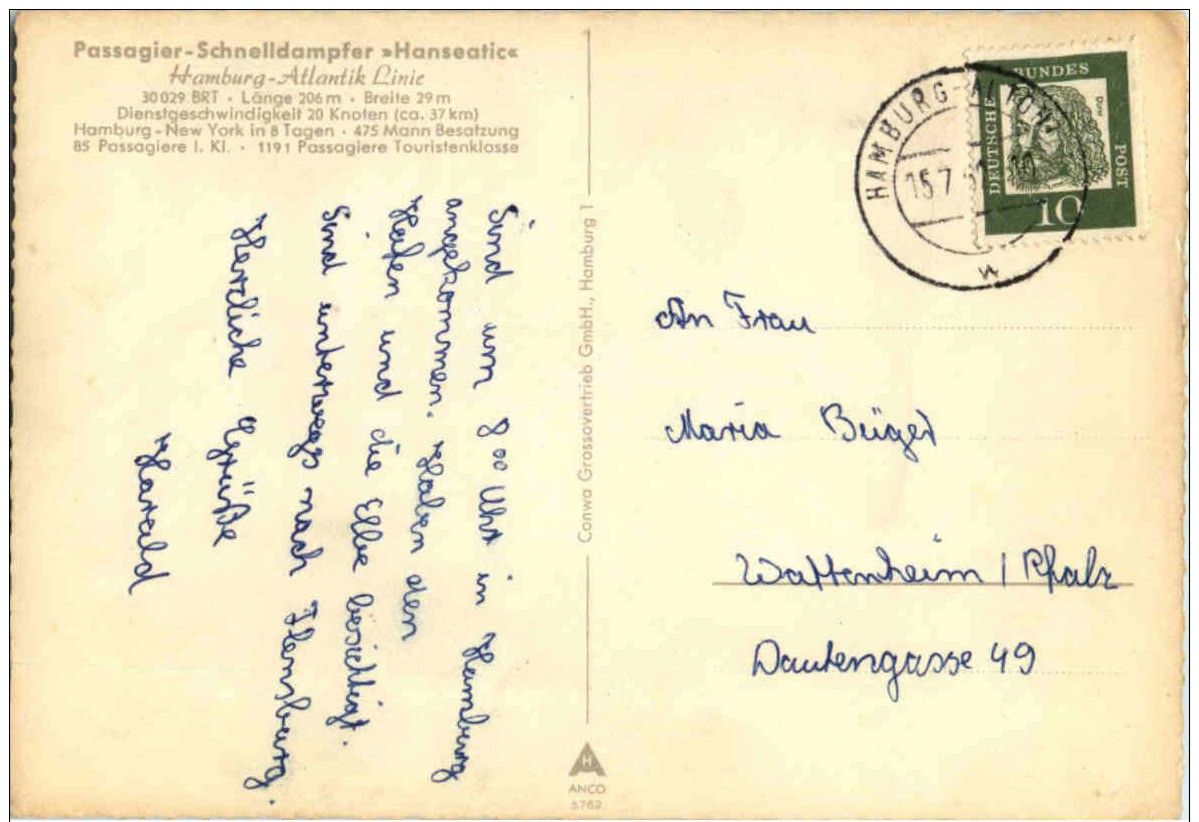 Passagier-Schnelldampfer »Hanseatic«
Hamburg-Atlantik Linie
30029 BRT · Länge 206 m · Breite 29 m
Dienstgeschwindigkeit 20 Knoten (ca. 37 km)
Hamburg-New York in 8 Tagen · 475 Mann Besatzung
85 Passagiere I. Kl. · 1191 Passagiere Touristenklasse
Sind um 8 00 Uhr in Hamburg
angekommen. Haben den
Hafen und die Elbe besichtigt.
Sind unterwegs nach Flensburg.
Herzliche Grüße
Harald
Conwa Grossovertrieb GmbH., Hamburg 1
ANCO
5762
HAMBURG-ALTONA
15.7
DEUTSCHE
BUNDES
POST
Dürer
10
An Frau
Maria Büger
Wattenheim / Pfalz
Dautengasse 49